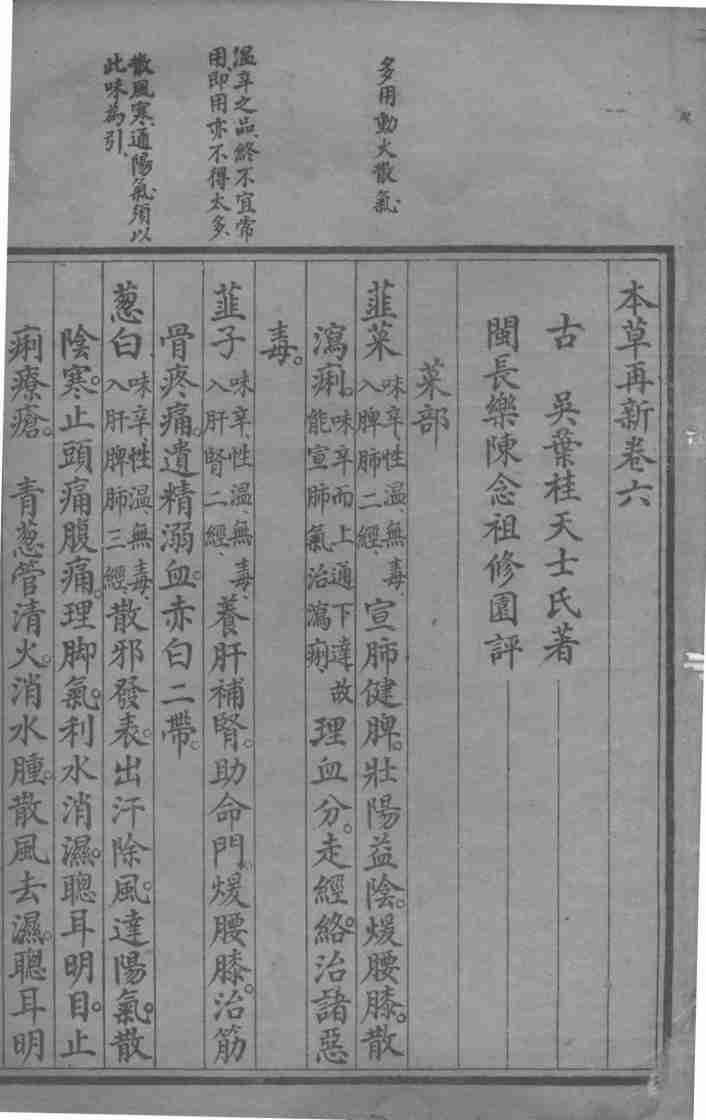 多用動火散氣
溫辛之品終不宜常
用即用亦不得太多
散風寒通陽氣須以
此味為引
本草再新卷六
古　吳葉桂天士氏著
閩長樂陳念祖修園評
菜部
韮菜味辛、性溫、無毒、入脾肺二經、宣肺健脾。壯陽益陰。煖腰膝。散
瀉痢。味辛而上通下達故能宣肺氣治瀉痢理血分。走經絡。治諸惡
毒。
韮子味辛、性溫、無毒、入肝腎二經、養肝補腎。助命門。煖腰膝。治筋
骨疼痛。遺精溺血。赤白二帶。
蔥白味辛、性溫、無毒、入肝脾肺三經、散邪發表。出汗除風。達陽氣。散
陰寒。止頭痛腹痛。理脚氣。利水消濕。聰耳明目。止
痢療瘡。　青蔥管清火。消水腫。散風去濕。聰耳明